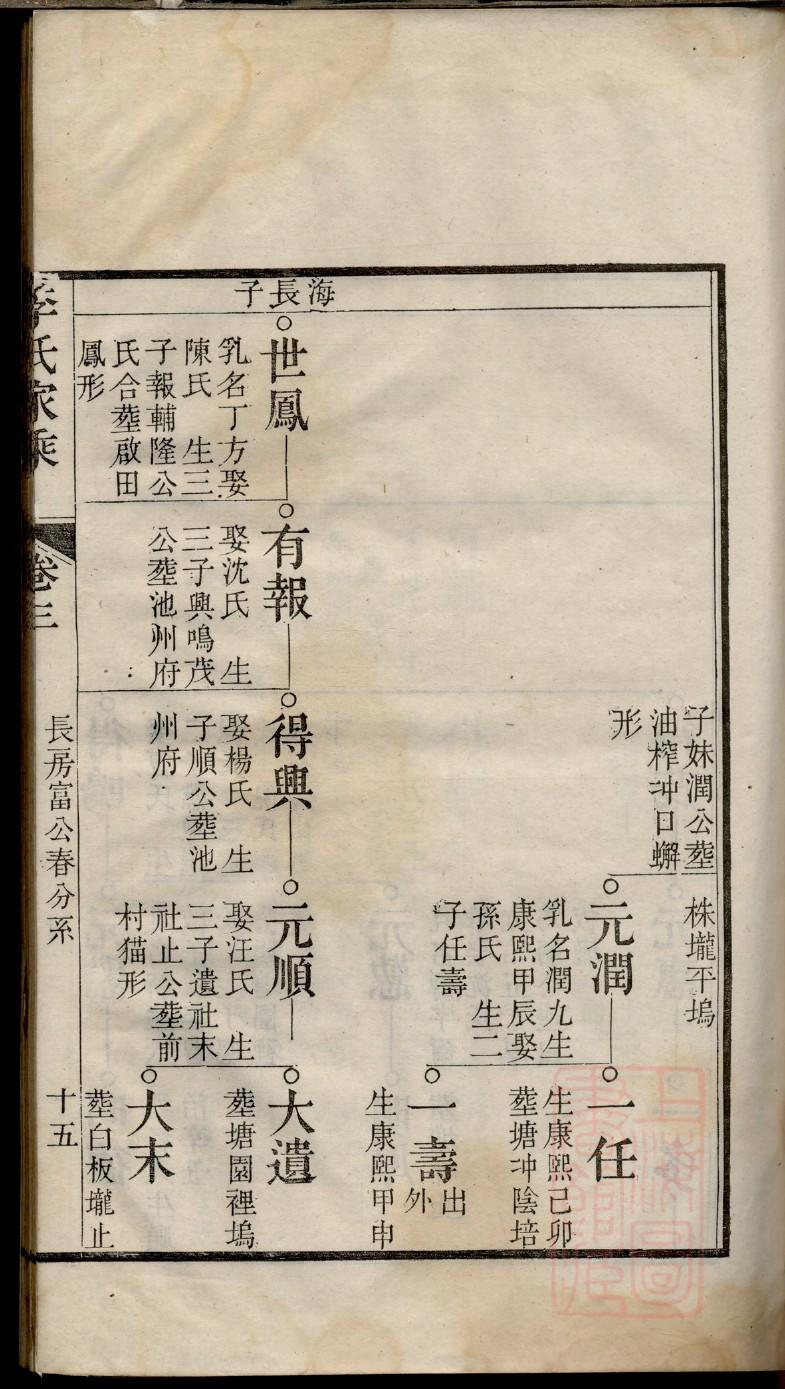 子妹潤公塟
油榨冲口蠏
形
株壠平塢
元潤
乳名潤九生
康熙甲辰娶
孫氏 生二
子任壽
一任
生康熙己卯
塟塘冲陰培
一壽
出
外
生康熙甲申
海長子
世鳳
乳名丁方娶
陳氏 生三
子報輔隆公
氏合塟啟田
鳳形
有報
娶沈氏 生
三子興鳴茂
公塟池州府
得興
娶楊氏 生
子順公塟池
州府
元順
娶汪氏 生
三子遺社末
社止公塟前
村猫形
大遺
塟塘園裡塢
大末
塟白板壠止
李氏家乘
卷三
長房富公春分系
十五